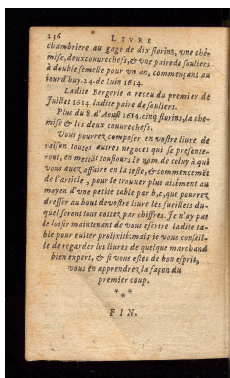 236 LIVRE
chambriere au gage de dix florins, vne chẽ-
mise, deux couurechefs, & vne paire de souliers
à double semelle pour vn an, commençant au
iourd'huy. 24. de Iuin 1614.
Ladite Bergerie a receu du premier de
Iuillet 1614. ladite paire de souliers.
Plus du 8. d'Aoust 1614. cinq florins, la che-
mise & les deux couurechefs.
Vous pourrez composer en vostre liure de
raison toutes autres negoces qui se presente-
ront, en mettãt tousiours le nom de celuy à qui
vous auez affaire en la teste, & commencemẽt
de l'article, pour le trouuer plus aisément au
moyen d'vne petite table par b, c, que pourrez
dresser au bout de vostre liure les fueillets du-
quel seront tous cottez par chiffres. Ie n'ay pas
le loisir maintenant de vous escrire ladite ta-
ble pour euiter prolixité: mais ie vous conseil-
le de regarder les liures de quelque marchand
bien expert, & si vous estes de bon esprit,
vous en apprendrez la façon du
premier coup.
***
FIN.